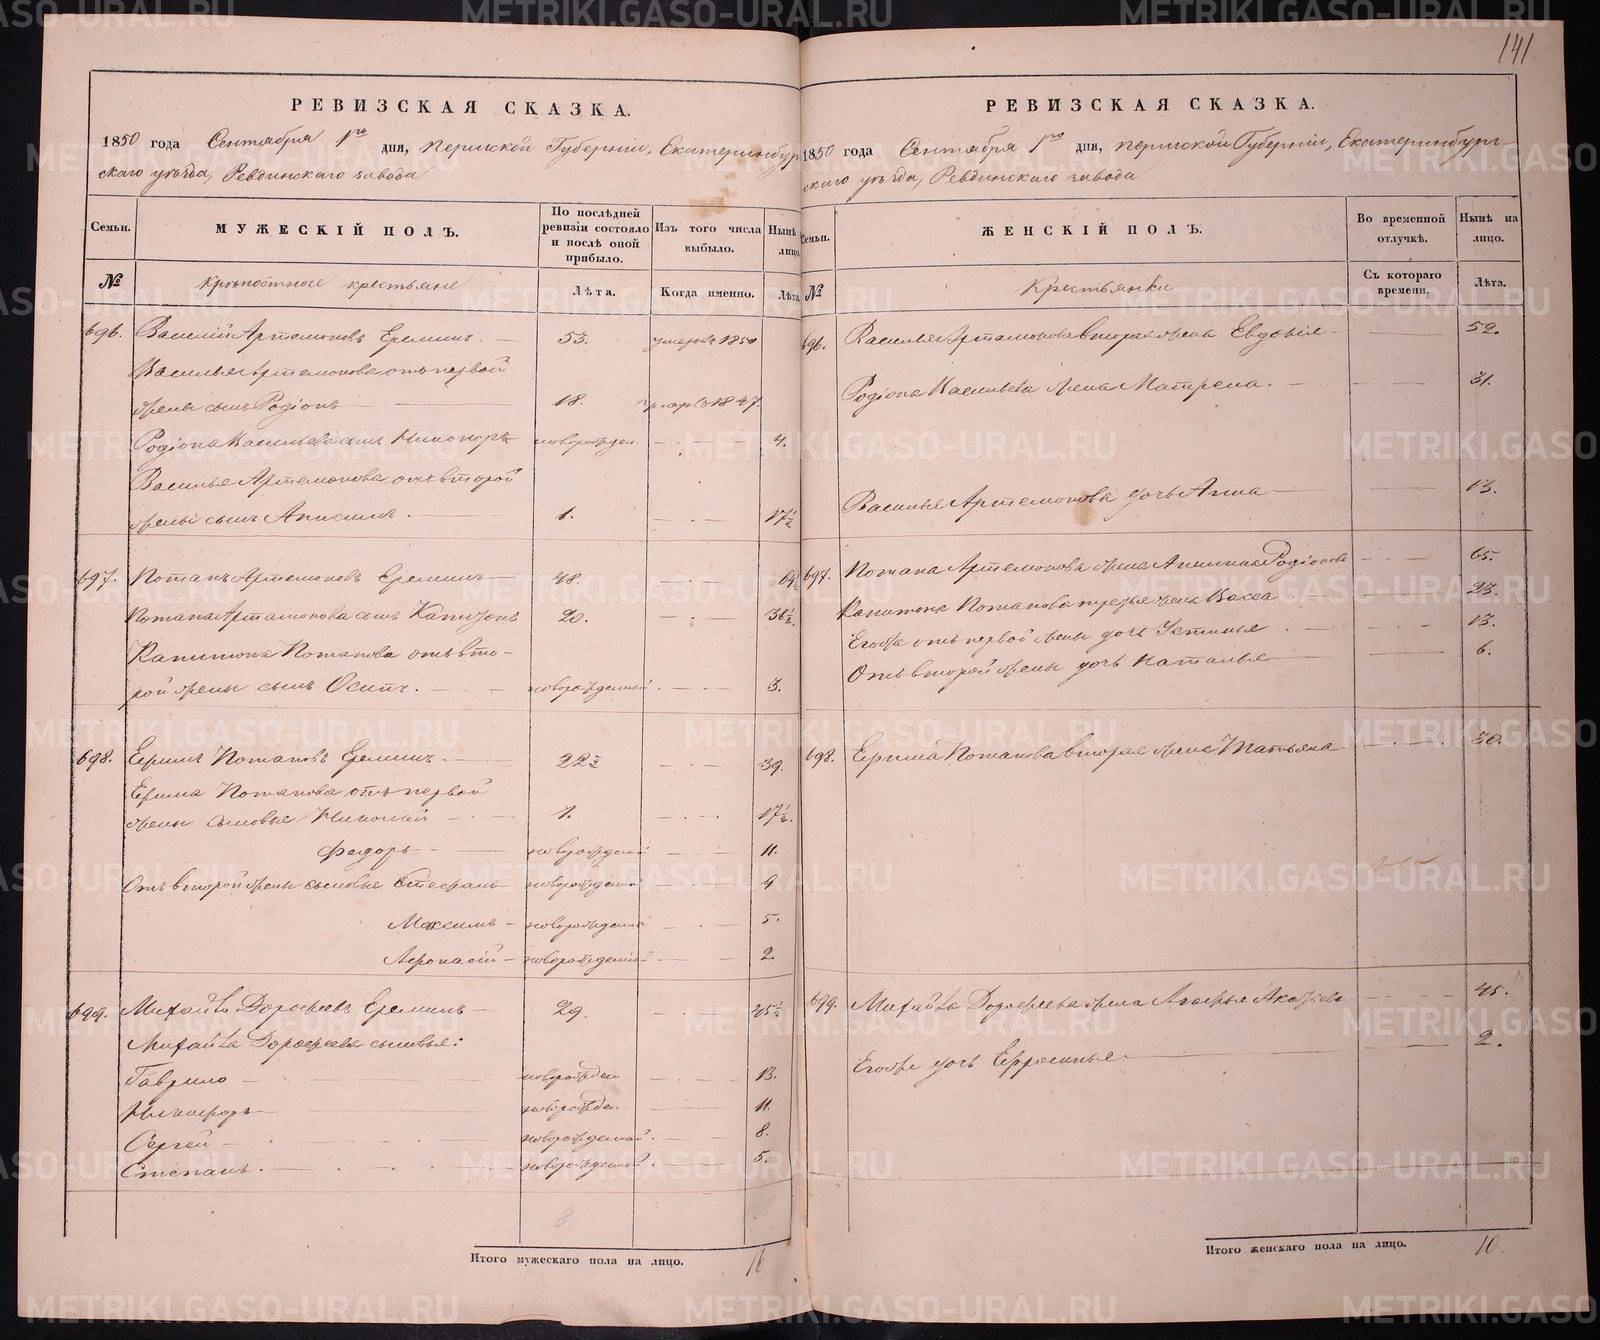 141
РЕВИЗСКАЯ СКАЗКА.
1850 года Сентября 1го дня, Пермской Губерніи, Екатеринбург-
скаго уѣзда, Ревдинскаго завода
Семьи.
МУЖЕСКІЙ ПОЛЪ.
По послѣдней ревизіи состояло и послѣ оной прибыло.
Изъ того числа выбыло.
Нынѣ на лицо.
№
Крѣпостные крестьяне
Лѣта.
Когда именно.
Лѣта.
696. Василій Артемоновъ Ереминъ. 53. умеръ 1850
Василья Артемонова отъ первой
жены сынъ Родіонъ 18. умеръ 1847.
Родіона Васильева сынъ Никоноръ новорожден. 4.
Василья Артемонова отъ второй
жены сынъ Анисимъ. 1. 17½
697. Потапъ Артемоновъ Ереминъ 48. 64½
Потапа Артамонова сынъ Капитонъ 20. 36½.
Капитона Потапова отъ вто-
рой жены сынъ Осипъ. новорожденной 3.
698. Ефимъ Потаповъ Ереминъ. 22½ 39.
Ефима Потапова отъ первой
жены сыновья Николай 1. 17½.
Федоръ новорожденой 11.
Отъ второй жены сыновья Стефанъ новорожденой 9
Максимъ новорожденой 5.
Афонасій новорожденной 2
699. Михайло Дорофеевъ Ереминъ 29. 45½
Михайла Дорофеева сыновья:
Гаврило новорожден. 13.
Никифоръ новорожден 11.
Сергей новорожденной. 8.
Степанъ. новорожденной. 5.
Итого мужескаго пола на лицо. 16
РЕВИЗСКАЯ СКАЗКА.
1850 года Сентября 1го дня, Пермской Губерніи, Екатеринбург-
скаго уѣзда, Ревдинскаго завода
Семьи.
ЖЕНСКІЙ ПОЛЪ.
Во временной отлучкѣ.
Нынѣ на лицо.
№
Крестьянки
Съ котораго времени.
Лѣта.
696. Василья Артамонова вторая жена Евдокия 52.
Родіона Васильева жена Матрена. 31.
Василья Артемонова дочь Анна 13.
697. Потапа Артемонова жена Родіонова 65.
Капитона Потапова третья жена Васса 23.
Егоже отъ первой жены дочь Устинья 13.
Отъ второй жены дочь Наталья 6.
698. Ефима Потапова вторая жена Татьяна 30.
699. Михайла Дорофеева жена Агафья 45.
Егоже дочь Ефросинья 2.
Итого женскаго пола на лицо. 10.
METRIKI.GASO-URAL.RU